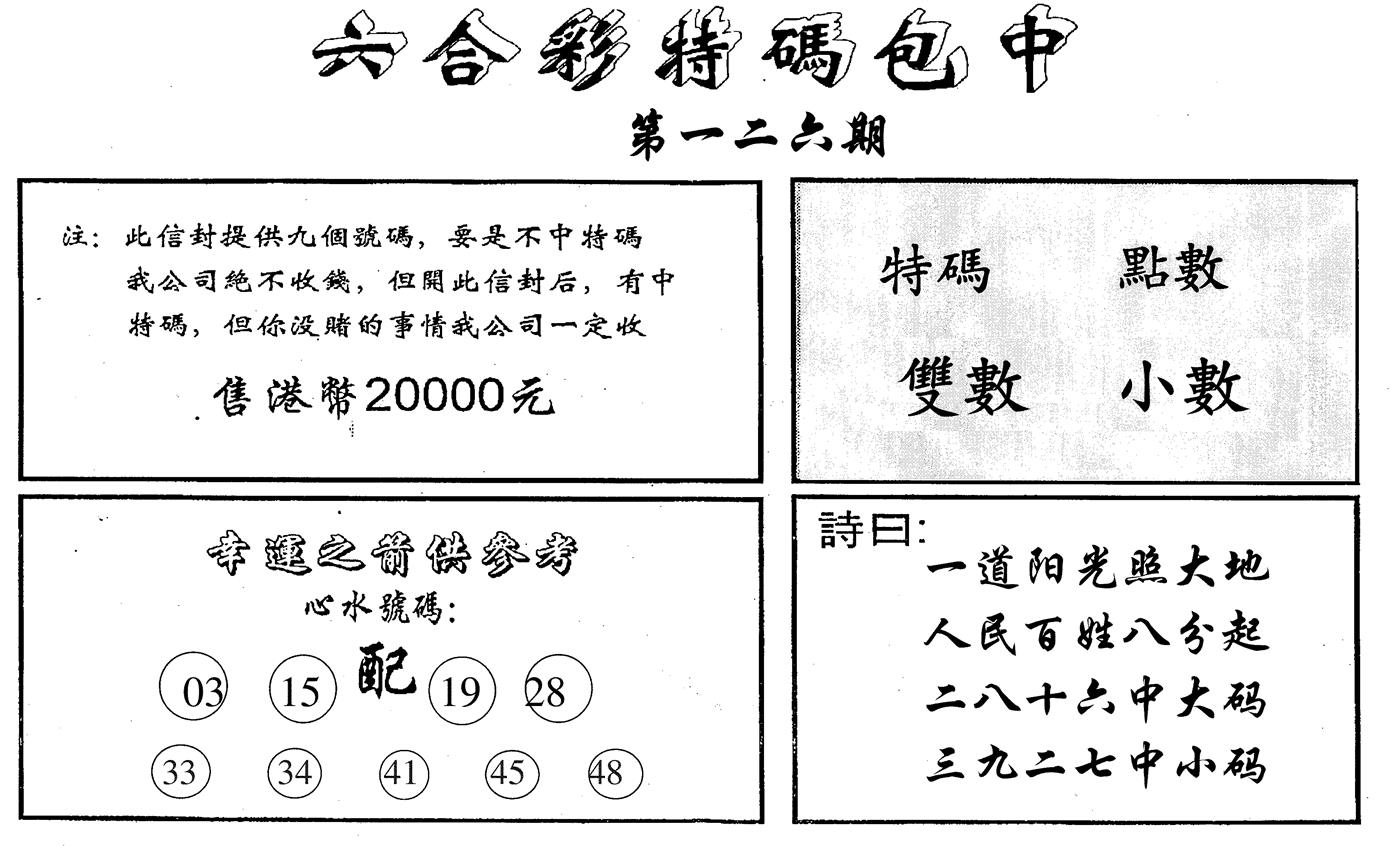 六合彩特碼包中
第一二六期
注：此信封提供九個號碼，要是不中特碼
我公司絕不收錢，但開此信封后，有中
特碼，但你没賭的事情我公司一定收
售港幣20000元
特碼 點數
雙數 小數
幸運之箭供參考
心水號碼：
03 15 配 19 28
33 34 41 45 48
詩曰：
一道阳光照大地
人民百姓八分起
二八十六中大码
三九二七中小码